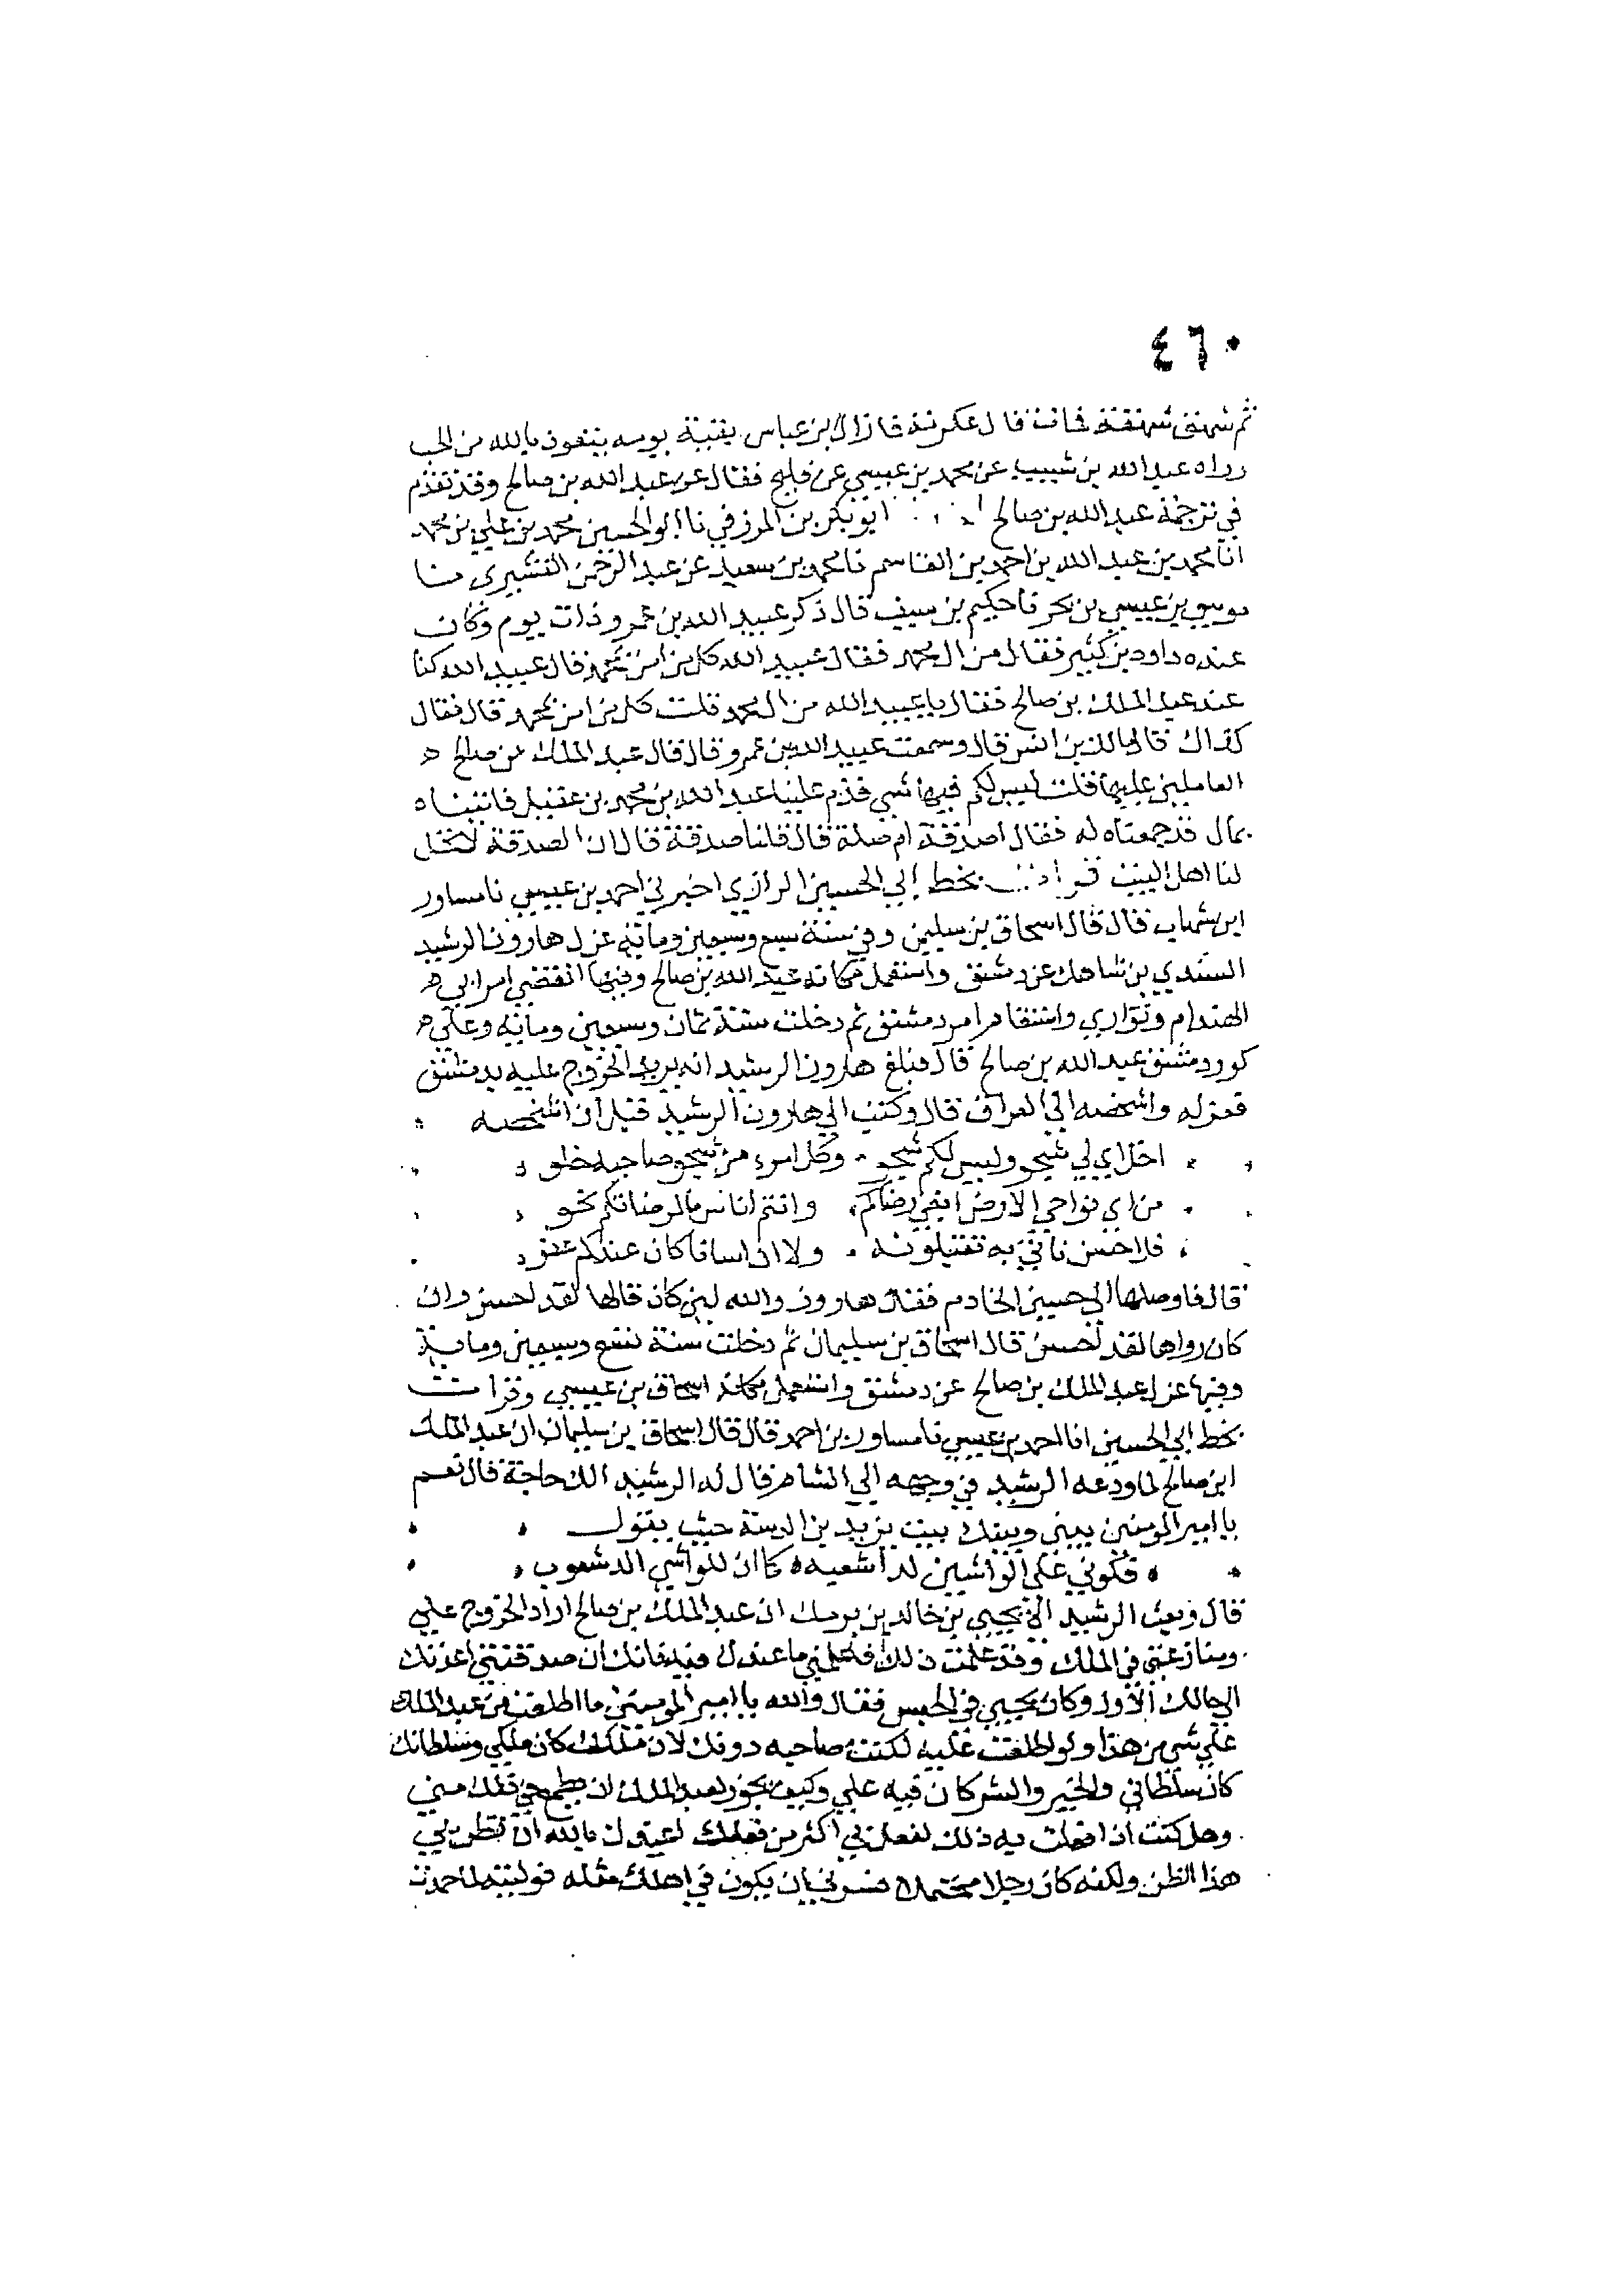 ٤٦٠
ثم شهق شهقة فمات قال عكرمة فما زال ابن عباس بقية يومه يتعوذ بالله من الحب
رواه عبد الله بن شبيب عن محمد بن عيسى عن فليح فقال عن عبد الله بن صالح وقد تقدم
في ترجمة عبد الله بن صالح ابو بكر بن المزرفي نا ابو الحسين محمد بن علي بن محمد
انا محمد بن عبد الله بن احمد بن القاسم نا محمد بن سعيد عن عبد الرحمن القشيري نا
بن عيسى بن بحر نا حكيم بن سيف قال ذكر عبيد الله بن عمرو ذات يوم وكان
عنده داود بن كثير فقال من ال محمد فقال عبيد الله كل من امن بمحمد قال عبيد الله كنا
عند عبد الملك بن صالح فقال يا عبيد الله من ال محمد قلت كل من امن بمحمد قال فقال
كذاك قال مالك بن انس قال وسمعت عبيد الله بن عمرو قال قال عبد الملك بن صالح
العاملين عليها قلت ليس لكم فيها شي قدم علينا عبد الله بن محمد بن عقيل فاتيناه
بمال قد جمعناه له فقال اصدقة ام صلة قال قلنا صدقة قال ان الصدقة لا تحل
لنا اهل البيت بخط ابي الحسين الرازي اخبرني احمد بن عيسى نا مساور
ابن شهاب قال قال اسحاق بن سليمن وفي سنة سبع وسبعين وماية عزل هارون الرشيد
السندي بن شاهك عن دمشق واستعمل مكانه عبد الله بن صالح وفيها انقضى امر ابي
الهندام وتواري واستقام امر دمشق ثم دخلت سنة ثمان وسبعين وماية وعلى
كور دمشق عبد الله بن صالح قال فبلغ هارون الرشيد انه يريد الخروج عليه بدمشق
فعزله واشخصه الى العراق قال وكتب الي هارون الرشيد قبل ان اشخصه
اخلاي لي شجو وليس لكم شجو وكل امرء من شجو صاحبه خلو
من اي نواحي الارض ابغي رضاكم وانتم اناس ما لمرضاتكم نحو
فلا حسن ناتي به تقبلونه ولا ان اسانا كان عندكم عفو
قال فاوصلها الي حسين الخادم فقال هارون والله لين كان قالها لقد احسن وان
كان رواها لقد احسن قال اسحاق بن سليمان ثم دخلت سنة تسع وسبعين وماية
وفيها عزل عبد الملك بن صالح عن دمشق واستعمل مكانه اسحاق بن عيسى وقرات
بخط ابي الحسين انا احمد بن عيسى نا مساور بن احمد قال قال اسحاق بن سليمان ان عبد الملك
ابن صالح لما ودعه الرشيد في وجهه الي الشام قال له الرشيد الك حاجة قال نعم
يا امير المومنين بيني وبينك بيت يزيد بن الدمنة حيث يقول
فكوني على الواشين لدا شعيه كما ان للواشي الد شعوب
قال وبعث الرشيد الى يحيى بن خالد بن برمك ان عبد الملك بن صالح اراد الخروج علي
ومنازعتي في الملك وقد علمت ذلك فاعلمني ما عندك فيه فانك ان صدقتني اعدتك
الي حالك الاول وكان يحيى في الحبس فقال والله يا امير المومنين ما اطلعت من عبد الملك
على شي من هذا ولو اطلعت عليه لكنت صاحبه دونك لان ملكك كان ملكي وسلطانك
كان سلطاني والخير والشر كان فيه علي وكيف يجوز لعبد الملك ان يطمع في ذلك مني
وهل كنت اذا فعلت به ذلك لفعل بي اكثر من فعلك اعيذك بالله ان تظن بي
هذا الظن ولكنه كان رجلا محتملا فسرني ان يكون في اهلك مثله فوليته لما حمدت